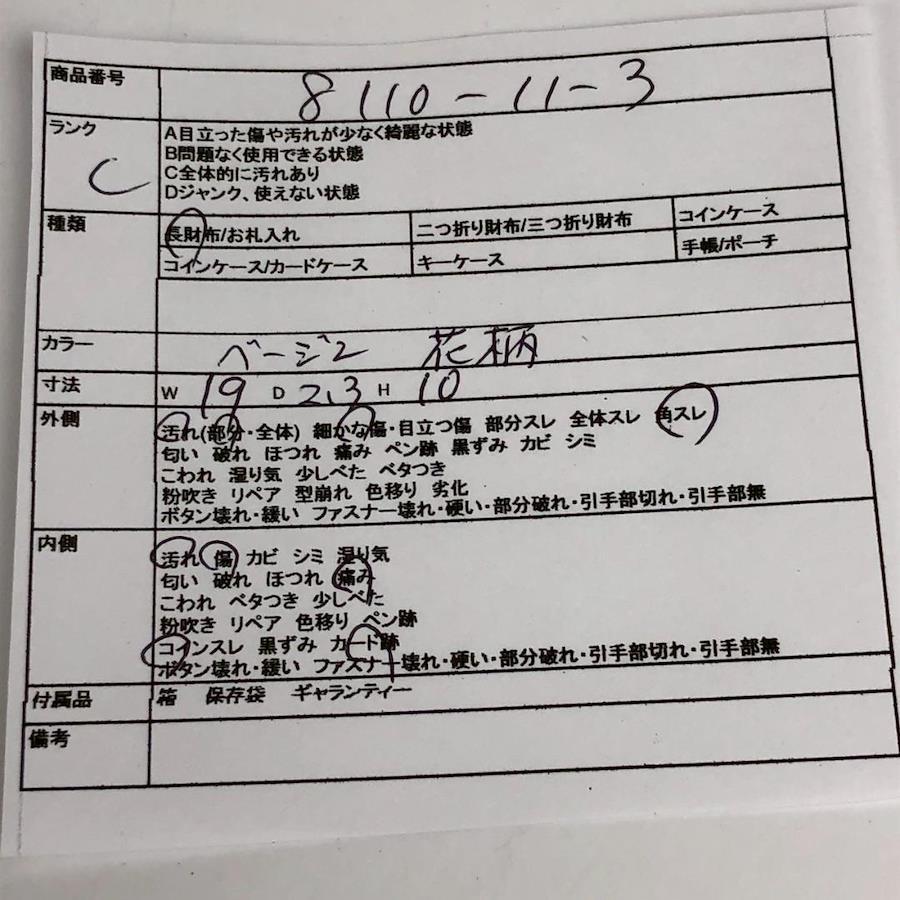 商品番号 8110-11-3
ランク C
A目立った傷や汚れが少なく綺麗な状態
B問題なく使用できる状態
C全体的に汚れあり
Dジャンク、使えない状態
種類 長財布/お札入れ 二つ折り財布/三つ折り財布 コインケース
コインケース/カードケース キーケース 手帳/ポーチ
カラー ベージュ 花柄
寸法 W 19 D 2.3 H 10
外側 汚れ(部分・全体) 細かな傷・目立つ傷 部分スレ 全体スレ 角スレ
匂い 破れ ほつれ 痛み ペン跡 黒ずみ カビ シミ
こわれ 湿り気 少しべた ベタつき
粉吹き リペア 型崩れ 色移り 劣化
ボタン壊れ・緩い ファスナー壊れ・硬い・部分破れ・引手部切れ・引手部無
内側 汚れ 傷 カビ シミ 湿り気
匂い 破れ ほつれ 痛み
こわれ ベタつき 少しべた
粉吹き リペア 色移り ペン跡
コインスレ 黒ずみ カード跡
ボタン壊れ・緩い ファスナー壊れ・硬い・部分破れ・引手部切れ・引手部無
付属品 箱 保存袋 ギャランティー
備考